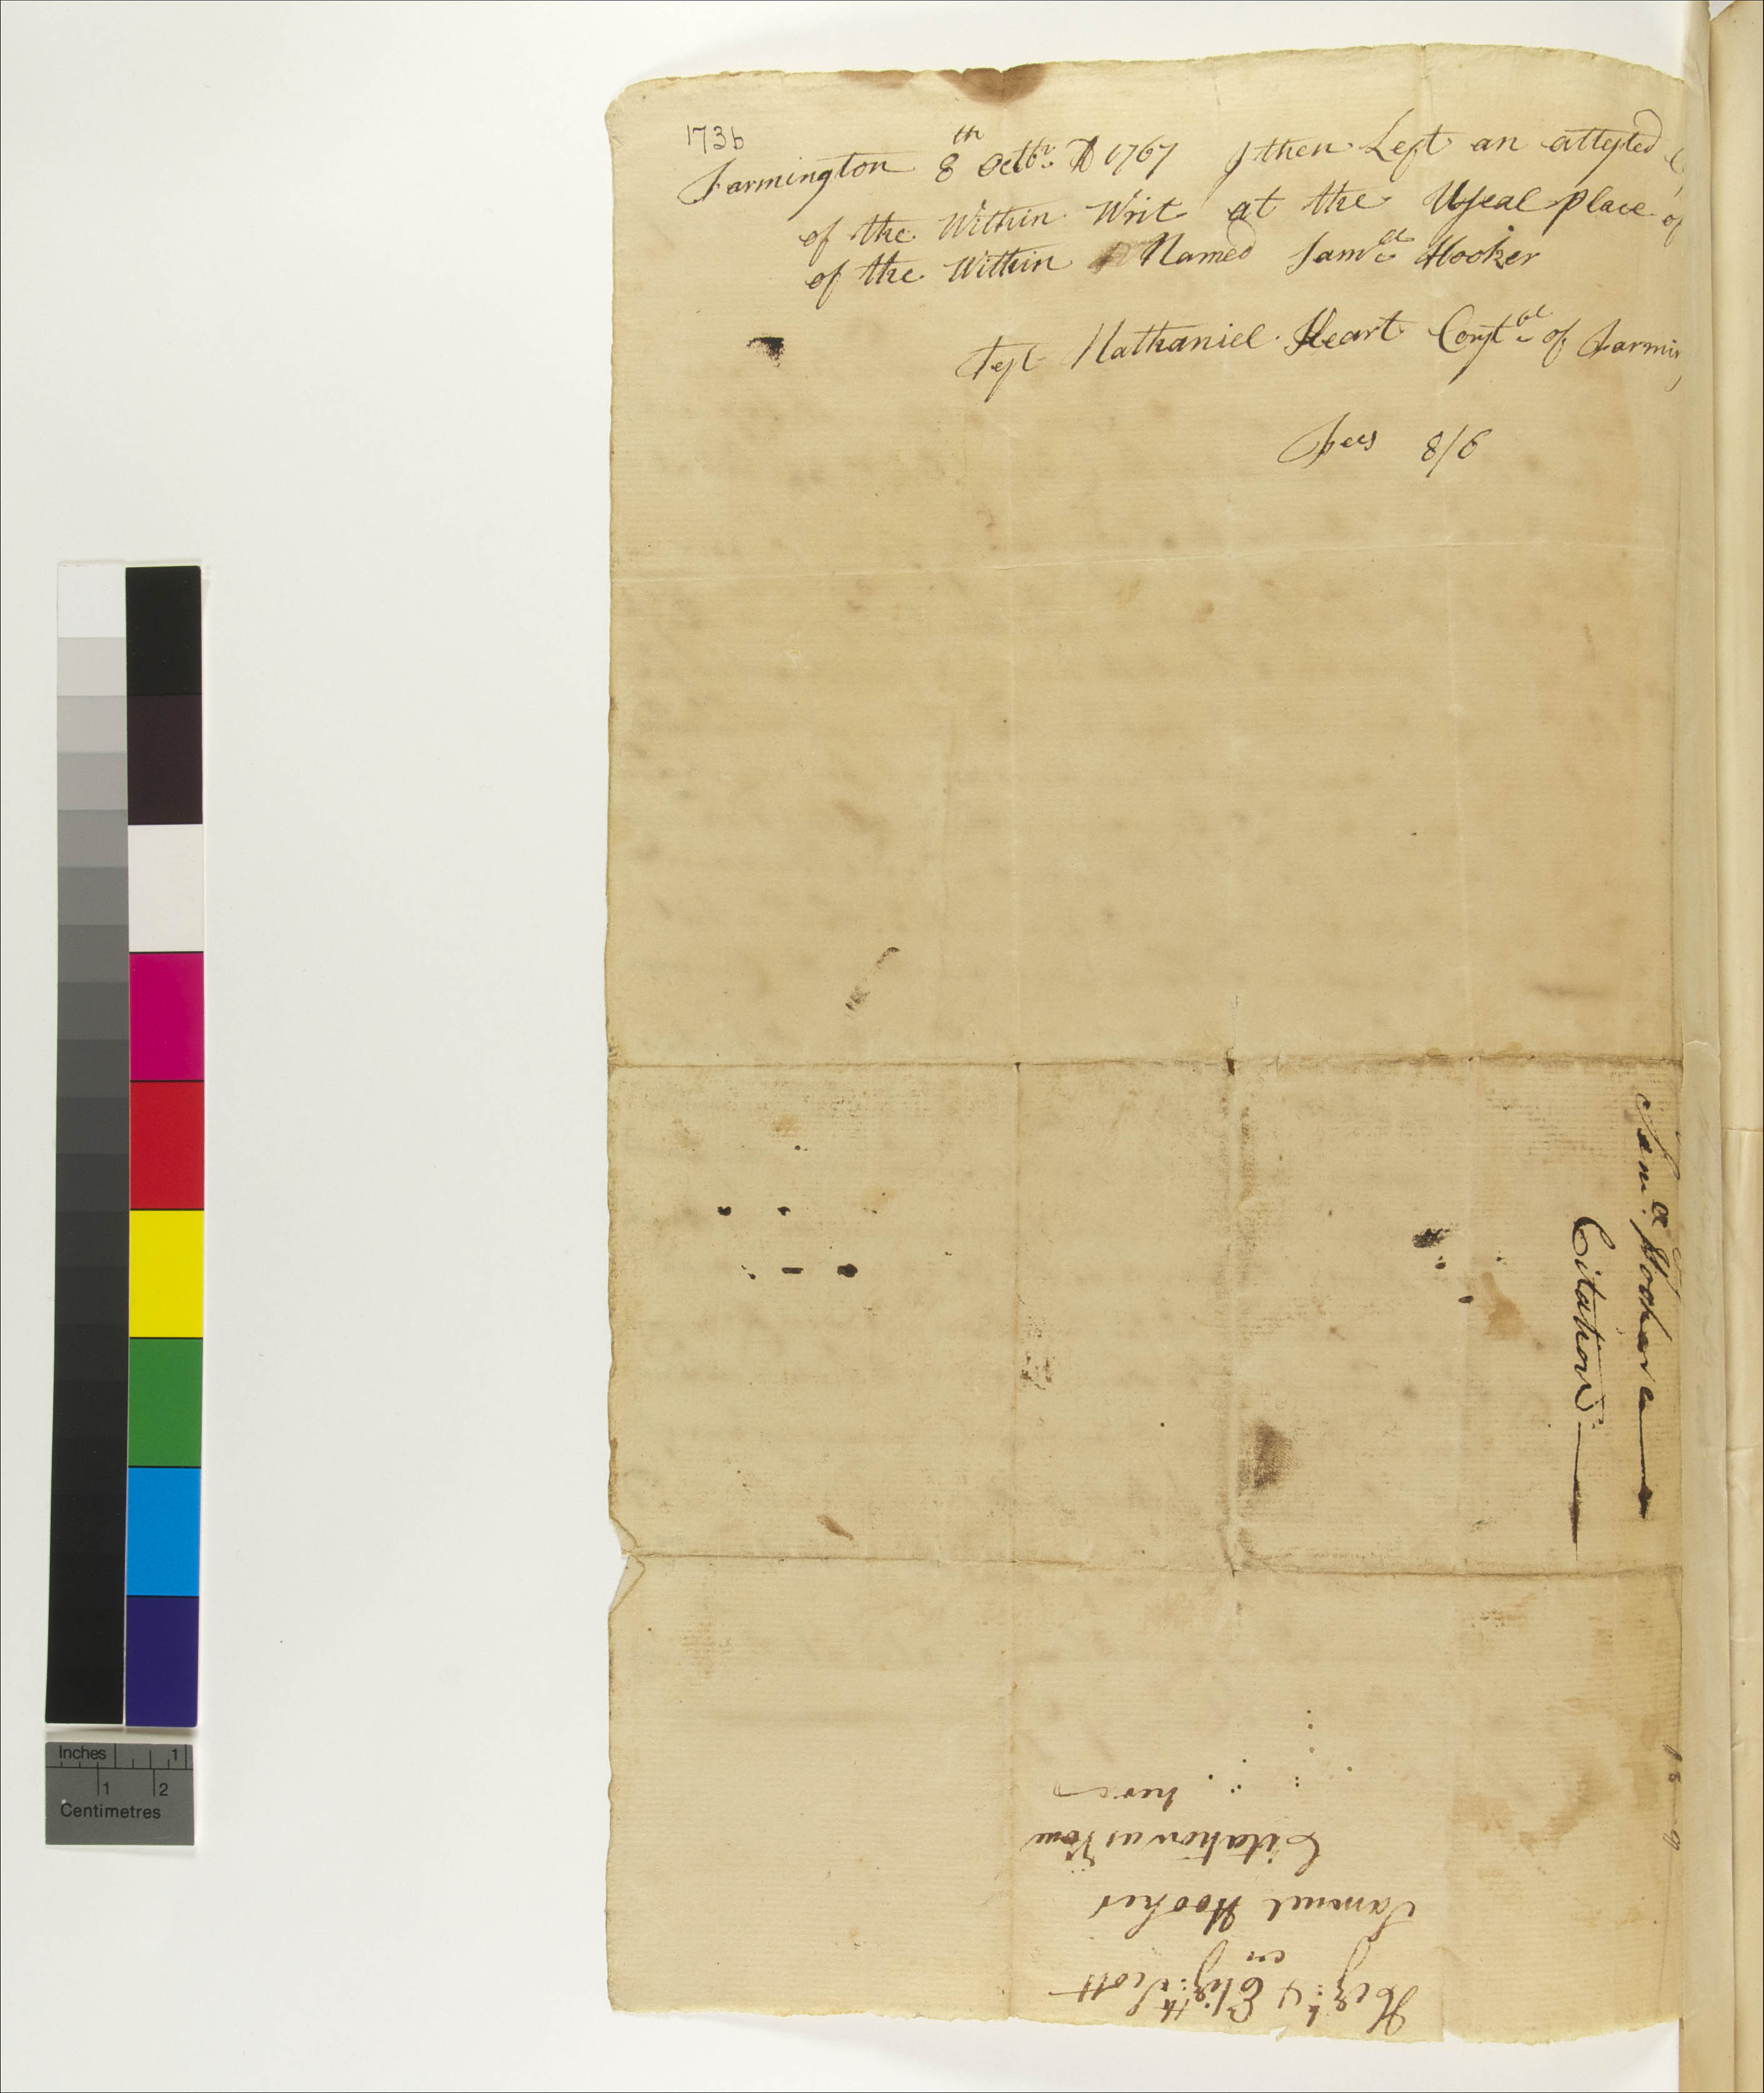 173b
Farmington 8th Octbr AD 1767 I then Left an attested
of the Within Writ at the Useal place of
of the Within Named Samll Hooker
Test Nathaniel Heart Constbl of Farmin
Fees 8/6
Samll Hooker
Citation
Hezh & Elizth Scott
Samuel Hooker
Citation as
here
Inches 1
1 2
Centimetres